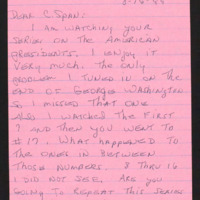 Dear C-Span:
I am watching your
series on the American
Presidents. I enjoy it
very much. The only
problem I tuned in on the
end of George Washington
so I missed that one
also I watched the first
7 and then you went to
#17. What happened to
the ones in between
those numbers. 8 thru 16
I did not see. Are you
going to repeat this series